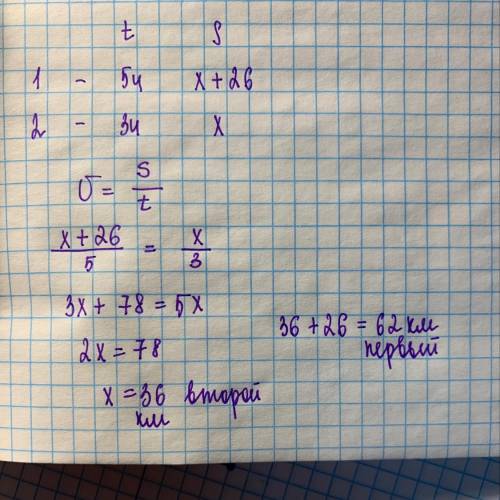 t S
1 - 5ч x + 26
2 - 3ч x
υ = S/t
(x + 26)/5 = x/3
3x + 78 = 5x
2x = 78
x = 36 второй
км
36 + 26 = 62 км
первый